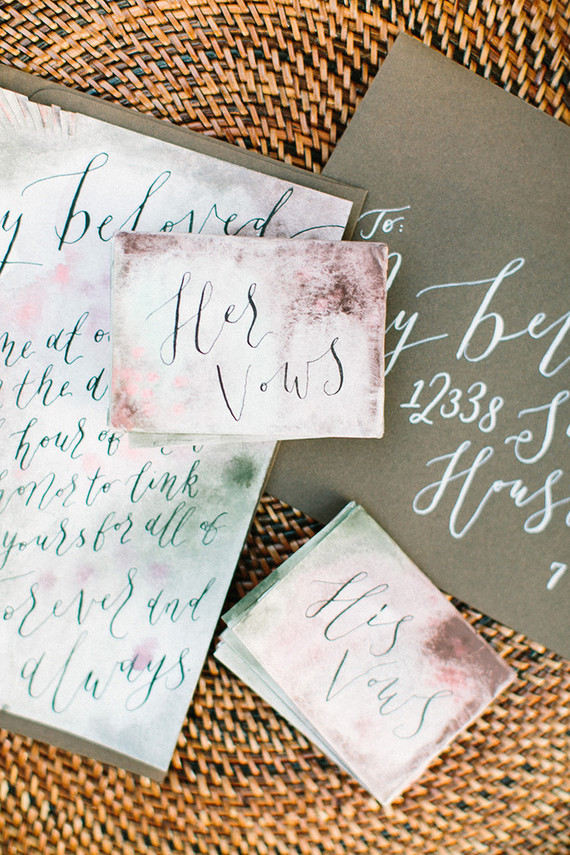 y beloved
me at o
the d
hour of
honor to link
yours for all of
Forever and
always.
Her
Vows
To:
My bel
12338 S
Hous
7
His
Vows